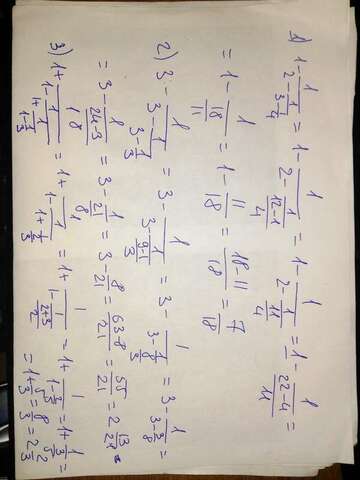 1) 1 - 1/(2 - 1/(3 - 1/4)) = 1 - 1/(2 - 1/((12-1)/4)) = 1 - 1/(2 - 1/(11/4)) = 1 - 1/((22-4)/11) =
= 1 - 1/(18/11) = 1 - 11/18 = (18-11)/18 = 7/18
2) 3 - 1/(3 - 1/(3 - 1/3)) = 3 - 1/(3 - 1/((9-1)/3)) = 3 - 1/(3 - 1/(8/3)) = 3 - 1/(3 - 3/8) =
= 3 - 1/((24-3)/8) = 3 - 1/(21/8) = 3 - 8/21 = (63-8)/21 = 55/21 = 2 13/21
3) 1 + 1/(1 - 1/(1 + 1/(1 - 1/3))) = 1 + 1/(1 - 1/(1 + 1/(2/3))) = 1 + 1/(1 - 1/((2+3)/2)) = 1 + 1/(1 - 2/5) = 1 + 1/(3/5) =
= 1 + 5/3 = 8/3 = 2 2/3